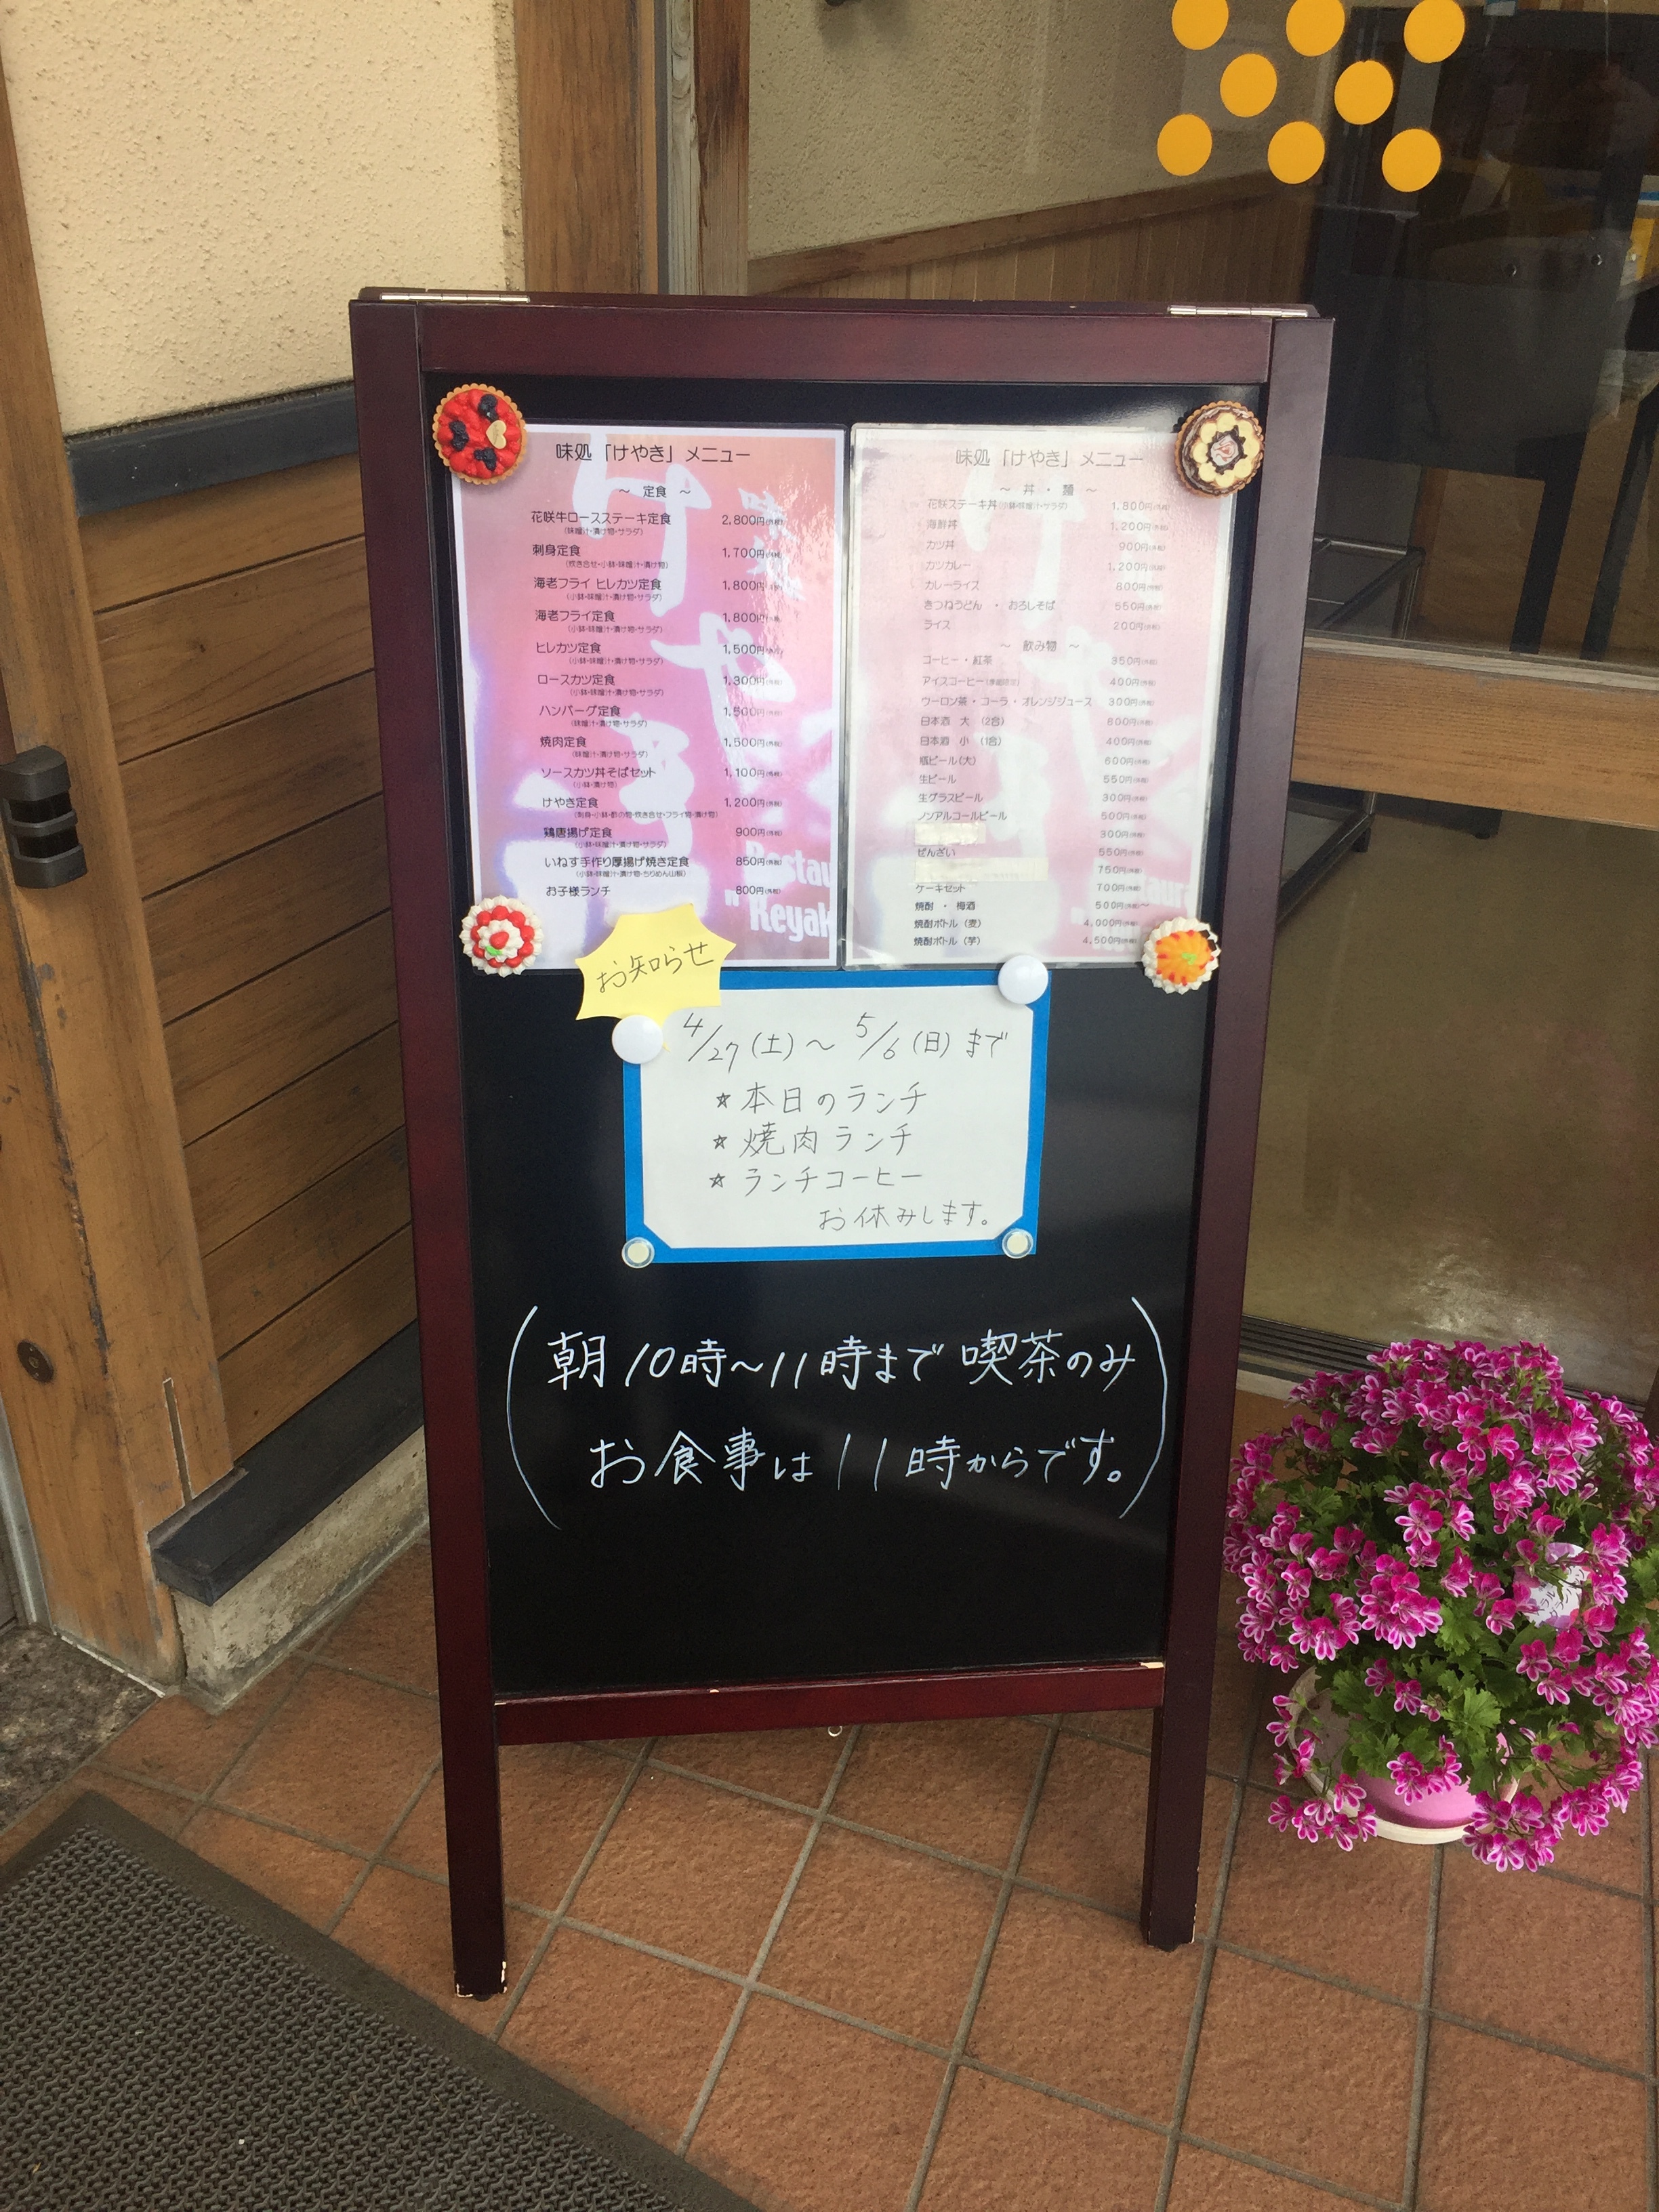 味処「けやき」メニュー
～ 定食 ～
花咲牛ロースステーキ定食 2,800円(外税)
(味噌汁・漬け物・サラダ)
刺身定食 1,700円(外税)
(炊き合せ・小鉢・味噌汁・漬け物)
海老フライ ヒレカツ定食 1,800円(外税)
(小鉢・味噌汁・漬け物・サラダ)
海老フライ定食 1,800円(外税)
(小鉢・味噌汁・漬け物・サラダ)
ヒレカツ定食 1,500円(外税)
(小鉢・味噌汁・漬け物・サラダ)
ロースカツ定食 1,300円(外税)
(小鉢・味噌汁・漬け物・サラダ)
ハンバーグ定食 1,500円(外税)
(味噌汁・漬け物・サラダ)
焼肉定食 1,500円(外税)
(味噌汁・漬け物・サラダ)
ソースカツ丼そばセット 1,100円(外税)
(小鉢・漬け物)
けやき定食 1,200円(外税)
(刺身・小鉢・酢の物・炊き合せ・フライ物・漬け物)
鶏唐揚げ定食 900円(外税)
(小鉢・味噌汁・漬け物・サラダ)
いねす手作り厚揚げ焼き定食 850円(外税)
(小鉢・味噌汁・漬け物・ちりめん山椒)
お子様ランチ 800円(外税)
味処
けやき
Restau
"Keyak
味処「けやき」メニュー
～ 丼 ・ 麺 ～
花咲ステーキ丼(小鉢・味噌汁・サラダ) 1,800円(外税)
海鮮丼 1,200円(外税)
カツ丼 900円(外税)
カツカレー 1,200円(外税)
カレーライス 800円(外税)
きつねうどん ・ おろしそば 550円(外税)
ライス 200円(外税)
～ 飲み物 ～
コーヒー・紅茶 350円(外税)
アイスコーヒー 400円(外税)
ウーロン茶・コーラ・オレンジジュース 300円(外税)
日本酒 大 (2合) 800円(外税)
日本酒 小 (1合) 400円(外税)
瓶ビール(大) 600円(外税)
生ビール 550円(外税)
生グラスビール 300円(外税)
ノンアルコールビール 500円(外税)
300円(外税)
ぜんざい 550円(外税)
750円(外税)
ケーキセット 700円(外税)
焼酎 ・ 梅酒 500円(外税)～
焼酎ボトル (麦) 4,000円(外税)
焼酎ボトル (芋) 4,500円(外税)
お知らせ
4/27(土)～5/6(日)まで
☆本日のランチ
☆焼肉ランチ
☆ランチコーヒー
お休みします。
(朝10時～11時まで喫茶のみ
お食事は11時からです。)